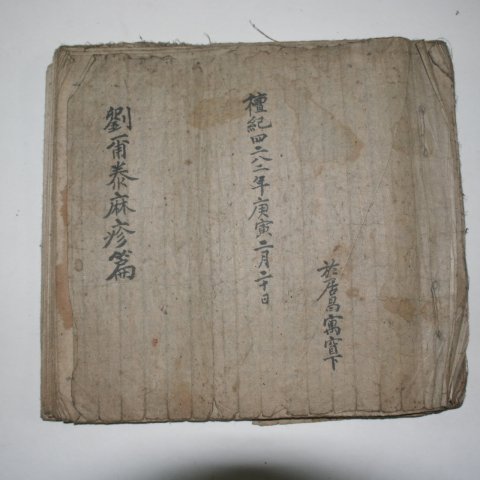 於居昌寓下
檀紀四二八二年庚寅二月二十日
劉爾泰麻疹篇